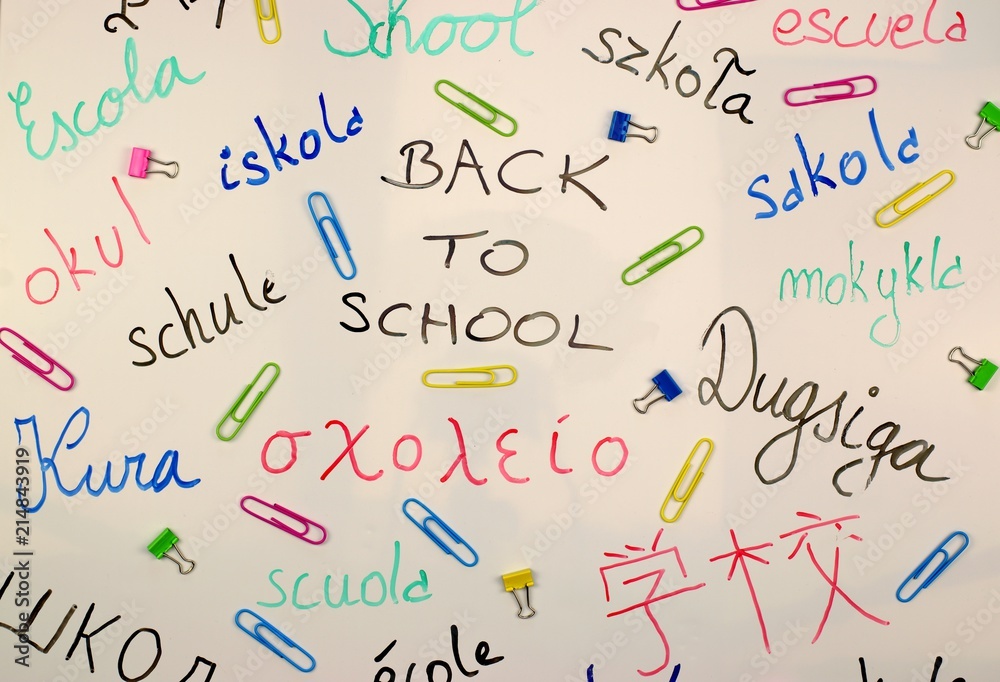 School
escuela
Escola
szkoła
iskola
BACK
TO
SCHOOL
sakola
okul
mokykla
schule
Dugsiga
Kura
σχολείο
学校
scuola
école
Adobe Stock | #214843919